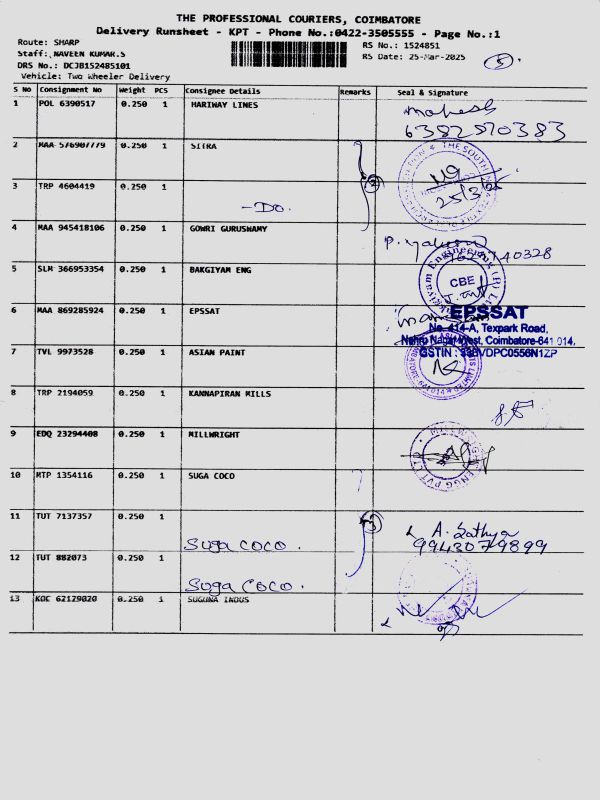 THE PROFESSIONAL COURIERS, COIMBATORE
Delivery Runsheet - KPT - Phone No.:0422-3505555 - Page No.:1
Route: SHARP
RS No.: 1524851
Staff: NAVEEN KUMAR.S
RS Date: 25-Mar-2025
5
DRS No.: DCJB152485101
Vehicle: Two Wheeler Delivery
S No Consignment No Weight PCS Consignee Details Remarks Seal & Signature
1 POL 6390517 0.250 1 HARIWAY LINES
Mahesh
6382870383
2 MAA 576907779 0.250 1 SITRA
3 TRP 4604419 0.250 1
-Do. 2
25/3/25
4 MAA 945418106 0.250 1 GOWRI GURUSWAMY
5 SLM 366953354 0.250 1 BAKGIYAM ENG
CBE
6 MAA 869285924 0.250 1 EPSSAT
EPSSAT
No. 414-A, Texpark Road,
Nehru Nagar West, Coimbatore-641 014.
GSTIN :
7 TVL 9973528 0.250 1 ASIAN PAINT
8 TRP 2194059 0.250 1 KANNAPIRAN MILLS
9 EDQ 23294408 0.250 1 MILLWRIGHT
10 MTP 1354116 0.250 1 SUGA COCO
11 TUT 7137357 0.250 1
Suga coco. 3 A. Sathya
9943079899
12 TUT 882073 0.250 1
Suga coco.
13 KOC 62129020 0.250 1 SUGUNA INDUS